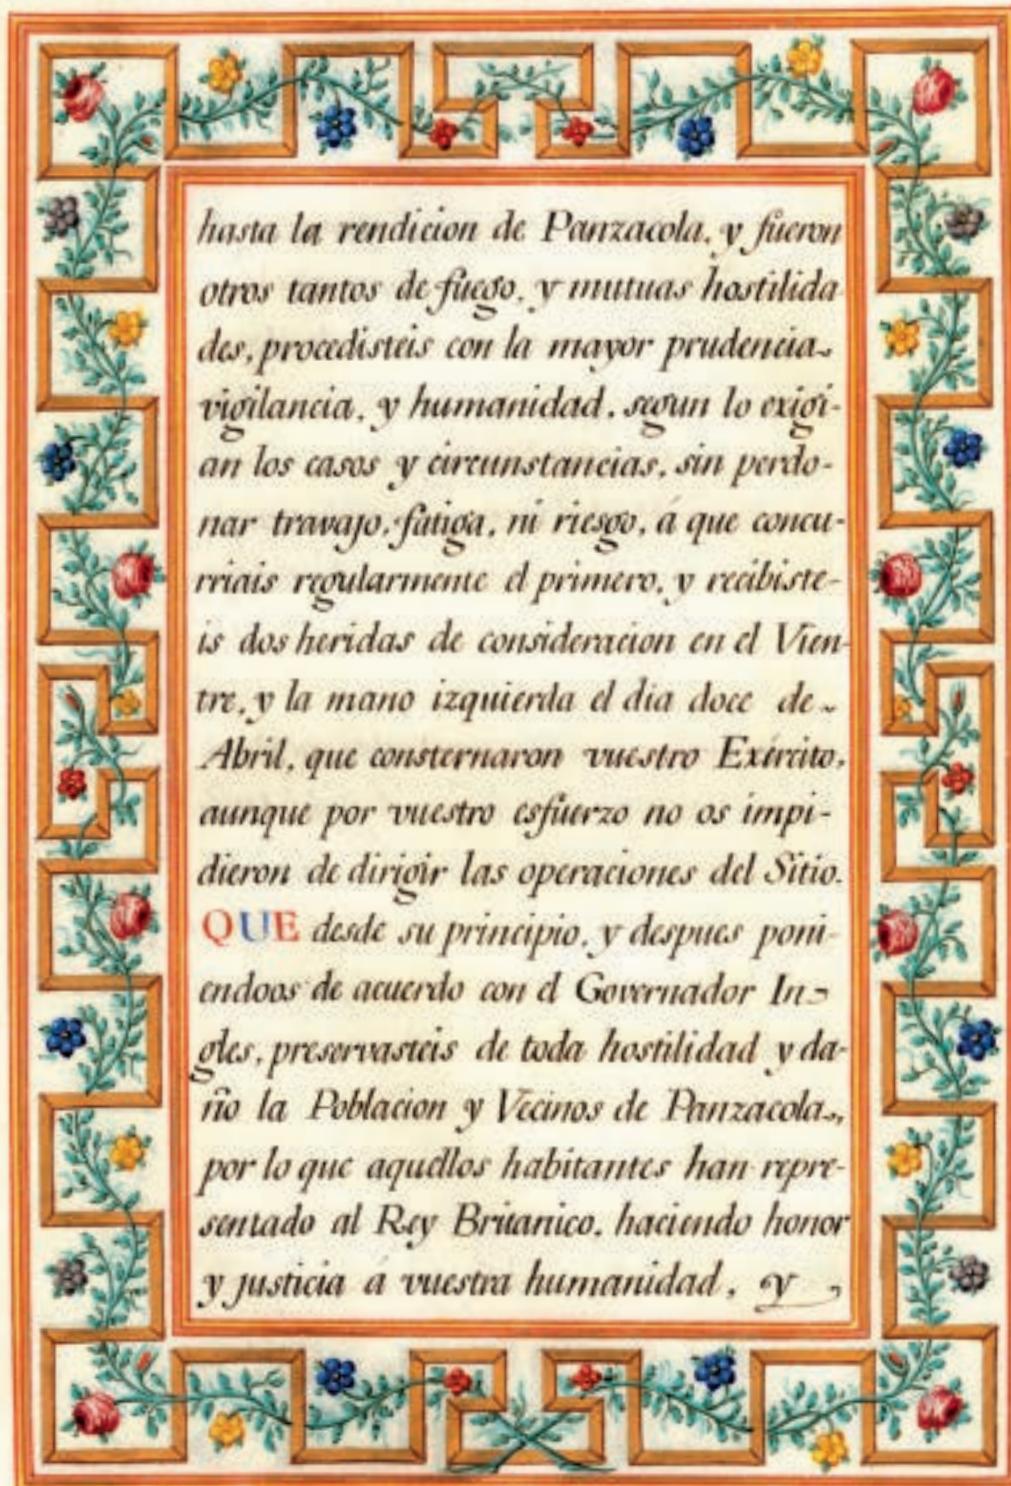 hasta la rendicion de Panzacola, y fueron
otros tantos de fuego, y mutuas hostilida
des, procedisteis con la mayor prudencia
vigilancia, y humanidad, segun lo exigi-
an los casos y circunstancias, sin perdo-
nar travajo, fatiga, ni riesgo, á que concu-
rriais regularmente el primero, y recibiste-
is dos heridas de consideracion en el Vien-
tre, y la mano izquierda el dia doce de
Abril, que consternaron vuestro Exército,
aunque por vuestro esfuerzo no os impi-
dieron de dirigir las operaciones del Sitio.
QUE desde su principio, y despues poni-
endoos de acuerdo con el Governador In-
gles, preservasteis de toda hostilidad y da-
ño la Poblacion y Vecinos de Panzacola,
por lo que aquellos habitantes han repre-
sentado al Rey Britanico, haciendo honor
y justicia á vuestra humanidad, y